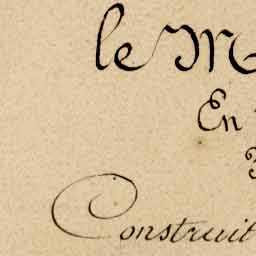 le M
En
Construit